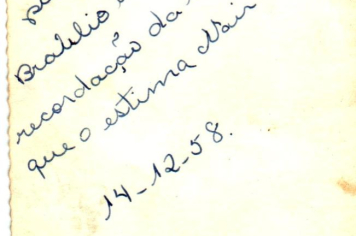 Bratilio
recordação da
que o estima Nair
14-12-58.